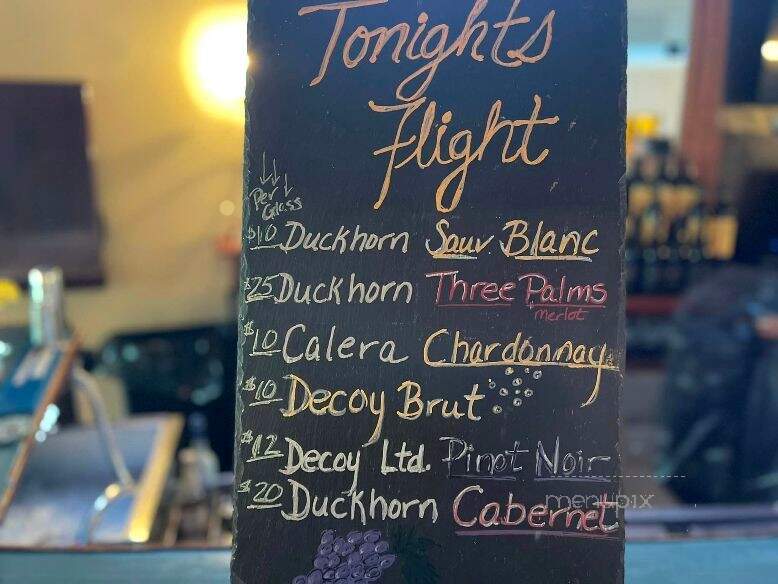 Tonights
Flight
Per
Glass
$10 Duckhorn Sauv Blanc
$25 Duckhorn Three Palms
merlot
$10 Calera Chardonnay
$10 Decoy Brut
$12 Decoy Ltd. Pinot Noir
$20 Duckhorn Cabernet
menupix